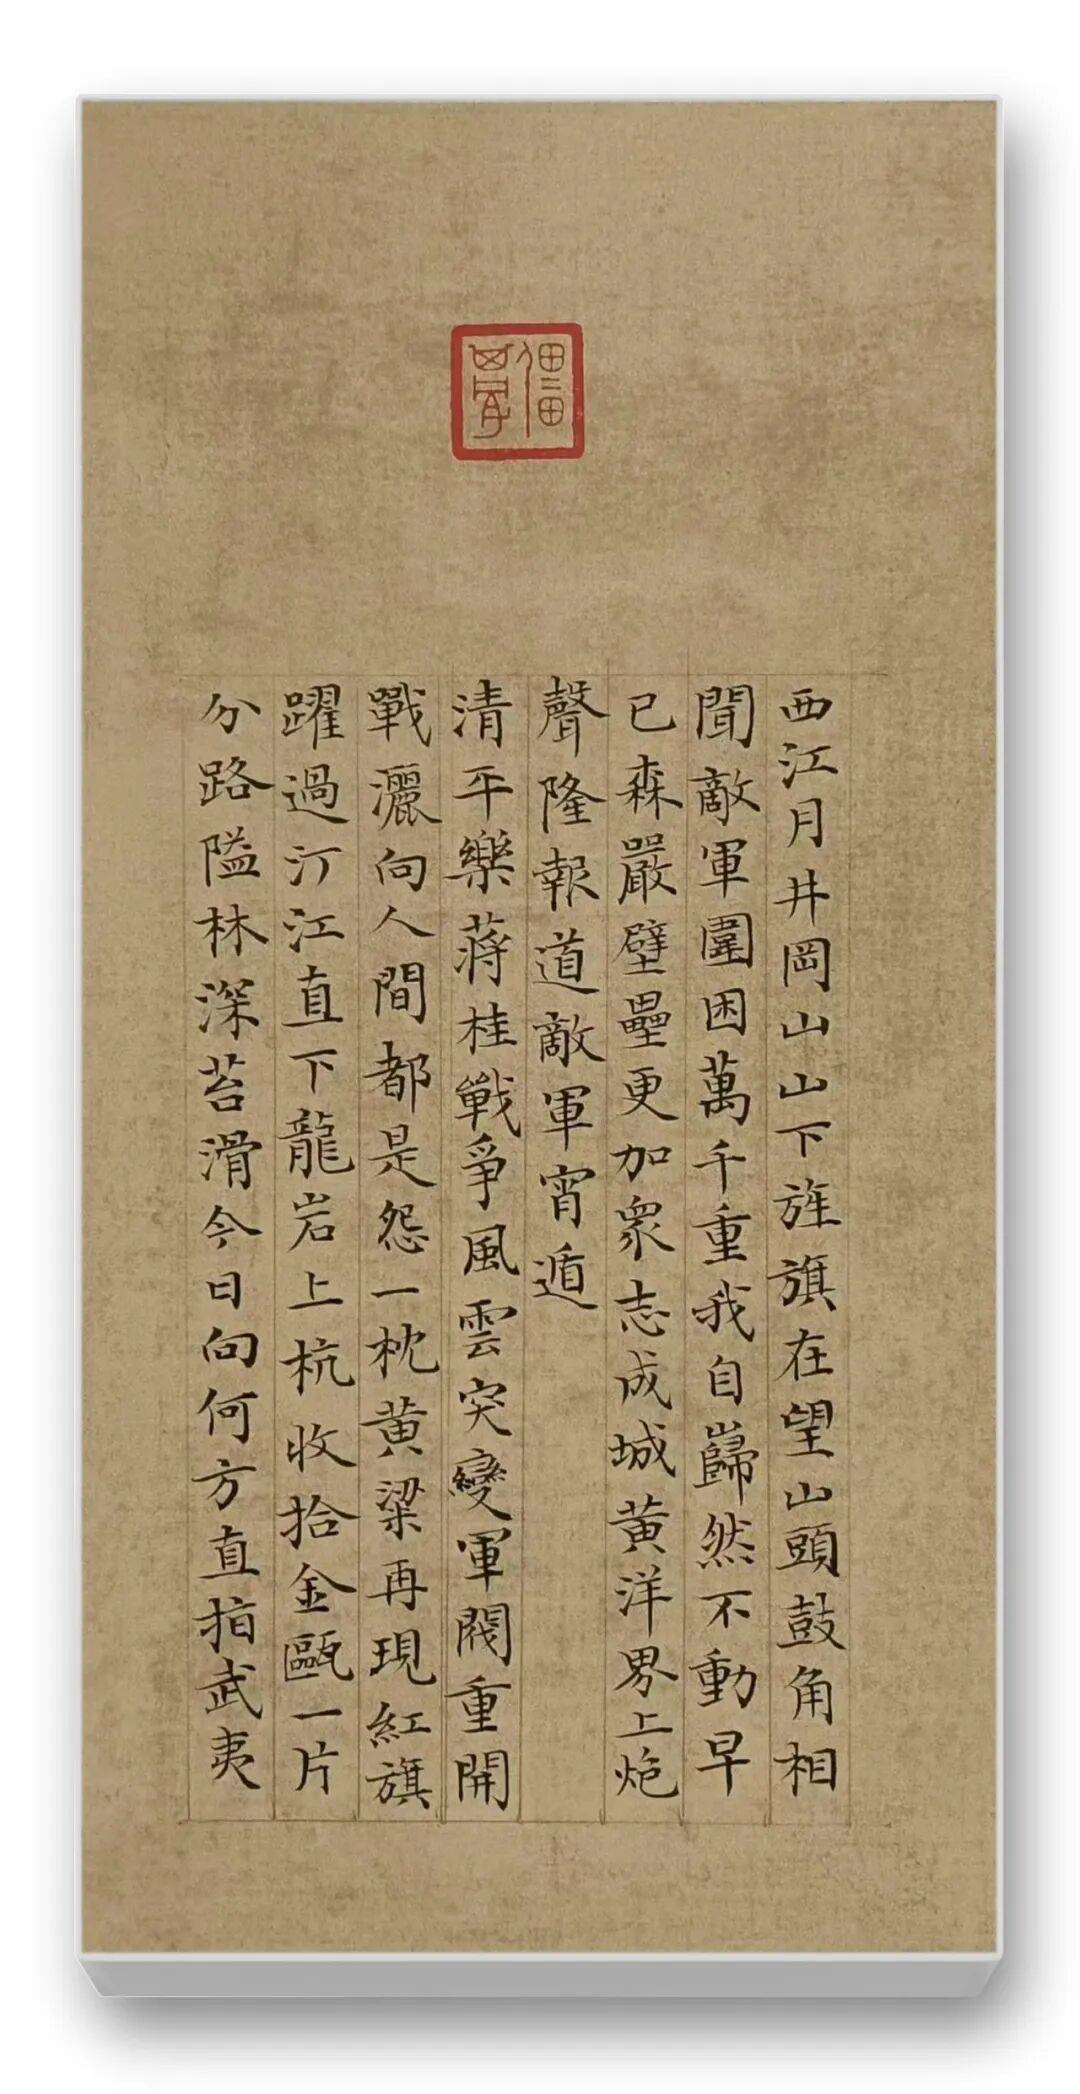 西江月井岡山山下旌旗在望山頭鼓角相
聞敵軍圍困萬千重我自巋然不動早
已森嚴壁壘更加眾志成城黃洋界上炮
聲隆報道敵軍宵遁
清平樂蔣桂戰爭風雲突變軍閥重開
戰灑向人間都是怨一枕黃粱再現紅旗
躍過汀江直下龍岩上杭收拾金甌一片
分路隘林深苔滑今日向何方直指武夷